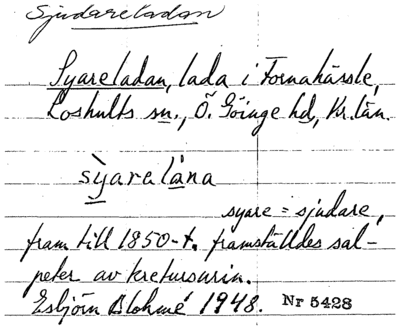 Sjudareladan
Syareladan, lada i Fornahässle,
Loshults sn., Ö. Göinge hd, Kr. län.
sỳarelana
syare = sjudare,
fram till 1850-t. framställdes sal-
peter av kreatursurin.
Esbjörn Blohmé 1948. Nr 5428